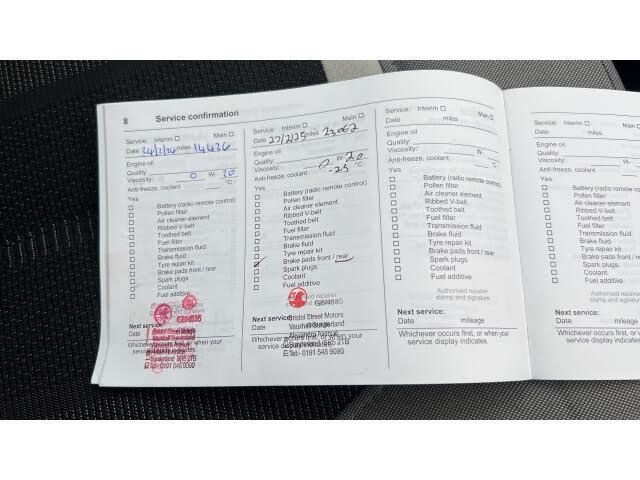 8 Service confirmation
Service: Interim Main
Date 24/2/24 miles 14426
Engine oil
Quality
Viscosity: 0 W- 20
Anti-freeze, coolant °C
Yes
Battery (radio remote control)
Pollen filter
Air cleaner element
Ribbed V-belt
Toothed belt
Fuel filter
Transmission fluid
Brake fluid
Tyre repair kit
Brake pads front / rear
Spark plugs
Coolant
Fuel additive
GBN535
Next service:
Date
Bristol Street Motors
Vauxhall Sunderland
Whichever occurs first, or when your
service display indicates.
Sunderland SR5 2TB
Tel: 0191 546 9090
Service: Interim Main
Date 27/2/25 miles 23,062
Engine oil
Quality
Viscosity: 0 W- 20
Anti-freeze, coolant -25 °C
Yes
Battery (radio remote control)
Pollen filter
Air cleaner element
Ribbed V-belt
Toothed belt
Fuel filter
Transmission fluid
Brake fluid
Tyre repair kit
Brake pads front / rear
Spark plugs
Coolant
Fuel additive
GBN535
Next service:
Bristol Street Motors
Date Vauxhall Sunderland
Whichever occurs first, or when your
service display indicates.
Sunderland SR5 2TB
Tel: 0191 546 9090
Service: Interim Main
Date miles
Engine oil
Quality
Viscosity: W-
Anti-freeze, coolant °C
Yes
Battery (radio remote control)
Pollen filter
Air cleaner element
Ribbed V-belt
Toothed belt
Fuel filter
Transmission fluid
Brake fluid
Tyre repair kit
Brake pads front / rear
Spark plugs
Coolant
Fuel additive
Authorised repairer
stamp and signature
Next service:
Date mileage
Whichever occurs first, or when your
service display indicates.
Service: Interim Main
Date miles
Engine oil
Quality
Viscosity: W-
Anti-freeze, coolant
Yes
Battery (radio remote co
Pollen filter
Air cleaner element
Ribbed V-belt
Toothed belt
Fuel filter
Transmission fluid
Brake fluid
Tyre repair kit
Brake pads front / rear
Spark plugs
Coolant
Fuel additive
Authorised repairer
stamp and signature
Next service:
Date mileage
Whichever occurs first, or when your
service display indicates.